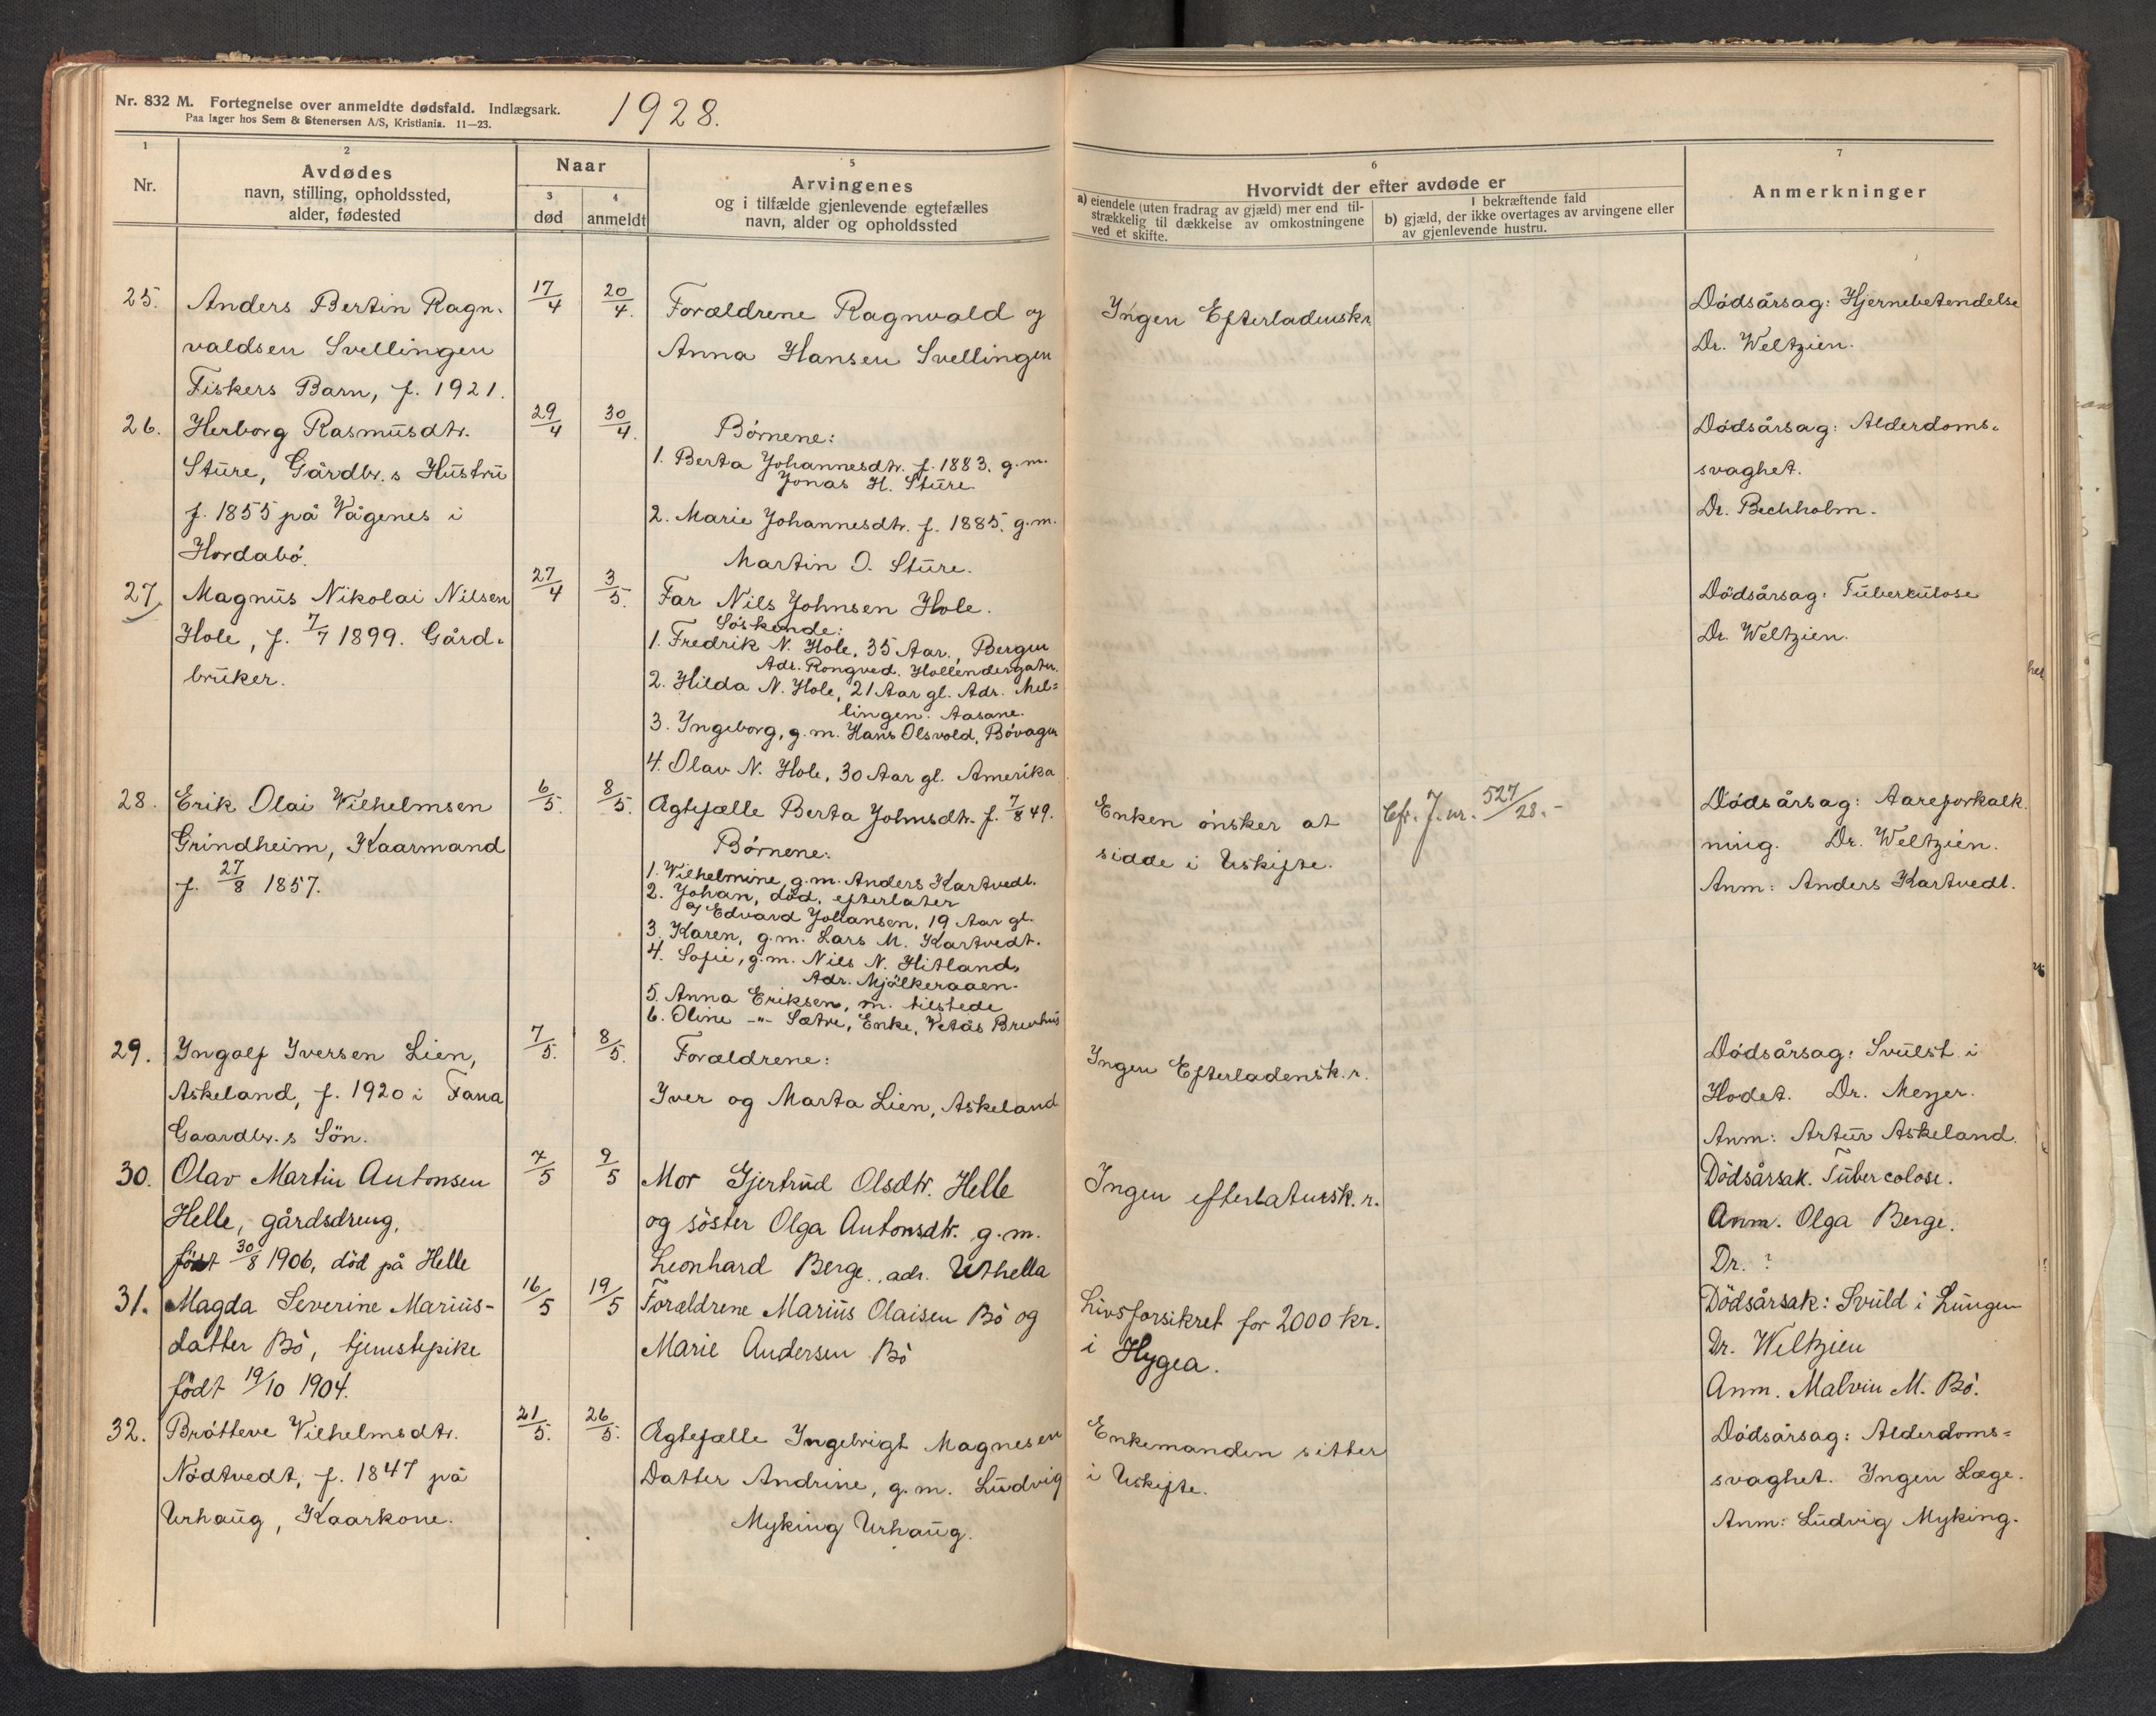 Nr. 832 M. Fortegnelse over anmeldte dødsfald. Indlægsark.
Paa lager hos Sem & Stenersen A/S, Kristiania. 11—23.
1928.
1
Nr.
2
Avdødes
navn, stilling, opholdssted,
alder, fødested
Naar
3
død
4
anmeldt
5
Arvingenes
og i tilfælde gjenlevende egtefælles
navn, alder og opholdssted
6
Hvorvidt der efter avdøde er
a) eiendele (uten fradrag av gjæld) mer end til-
strækkelig til dækkelse av omkostningene
ved et skifte.
I bekræftende fald
b) gjæld, der ikke overtages av arvingene eller
av gjenlevende hustru.
7
Anmerkninger
25.
Anders Bertin Ragn-
valdsen Svellingen
Fiskers Barn, f. 1921.
17/4
20/4.
Forældrene Ragnvald og
Anna Hansen Svellingen
Ingen Efterladensk.r
Dödsårsag: Hjernebetendelse
Dr. Weltzien.
26.
Herborg Rasmusdtr.
Sture, Gårdbr.s Hustru
f. 1855 på Vågenes i
Hordabö.
29/4
30/4.
Börnene:
1. Berta Johannesdtr. f. 1883. g.m.
Jonas H. Sture
2. Marie Johannesdtr. f. 1885. g.m.
Martin O. Sture.
Dödsårsag: Alderdoms-
svaghet.
Dr. Bechholm.
27
Magnus Nikolai Nilsen
Hole, f. 7/7 1899. Gård-
bruker.
27/4
3/5.
Far Nils Johnsen Hole.
Söskende:
1. Fredrik N. Hole, 35 Aar., Bergen
Adr. Rongved. Hollendergaten.
2. Hilda N. Hole, 21 Aar gl. Adr. Mel-
lingen. Aasane.
3. Ingeborg, g.m. Hans Olsvold, Bövagen
4. Olav N. Hole, 30 Aar gl. Amerika
Dödsårsag: Tuberkulose
Dr. Weltzien.
28.
Erik Olai Wilhelmsen
Grindheim, Kaarmand
f. 27/8 1857.
6/5.
8/5.
Ægtefælle Berta Johnsdtr. f. 7/8 49.
Börnene:
1. Wilhelmine, g.m. Anders Kartvedt.
2. Johan, död, efterlater
a/ Edvard Johansen, 19 Aar gl.
3. Karen, g.m. Lars M. Kartvedt.
4. Sofie, g.m. Nils N. Hitland,
Adr. Mjölkeraaen.
5. Anna Eriksen, m. tilstede
6. Oline -"- Sætre, Enke, Vetås Brevhus
Enken ønsker at
sidde i Uskifte.
Cfr. J. nr. 527/28.-
Dödsårsag: Aareforkalk-
ning. Dr. Weltzien.
Anm: Anders Kartvedt.
29.
Ingolf Iversen Lien,
Askeland, f. 1920 i Fana
Gaardbr.s Sön.
7/5.
8/5.
Forældrene:
Iver og Marta Lien, Askeland
Ingen Efterladensk.r.
Dödsårsag: Svulst i
Hodet. Dr. Meyer.
Anm: Artur Askeland.
30.
Olav Martin Antonsen
Helle, gårdsdreng,
födt 30/8 1906, död på Helle
7/5
9/5
Mor Gjertrud Olsdtr. Helle
og söster Olga Antonsdtr. g.m.
Leonhard Berge., adr. Uthella
Ingen efterlatensk.r.
Dödsårsak. Tubercolose.
Anm. Olga Berge.
Dr. ?
31.
Magda Severine Marius-
datter Bö, tjenestepike
födt 19/10 1904.
16/5
19/5
Forældrene Marius Olaisen Bö og
Marie Andersen Bö
Livsforsikret for 2000 kr.
i Hygea.
Dödsårsak: Svuld i Lungen
Dr. Weltzien
Anm. Malvin M. Bö.
32.
Bråtteve Vilhelmsdtr.
Nödtvedt, f. 1847 på
Urhaug, Kaarkone.
21/5.
26/5.
Ægtefælle Ingebrigt Magnesen
Datter Andrine, g.m. Ludvig
Myking Urhaug.
Enkemanden sitter
i Uskifte.
Dödsårsag: Alderdoms-
svaghet. Ingen Læge.
Anm: Ludvig Myking.